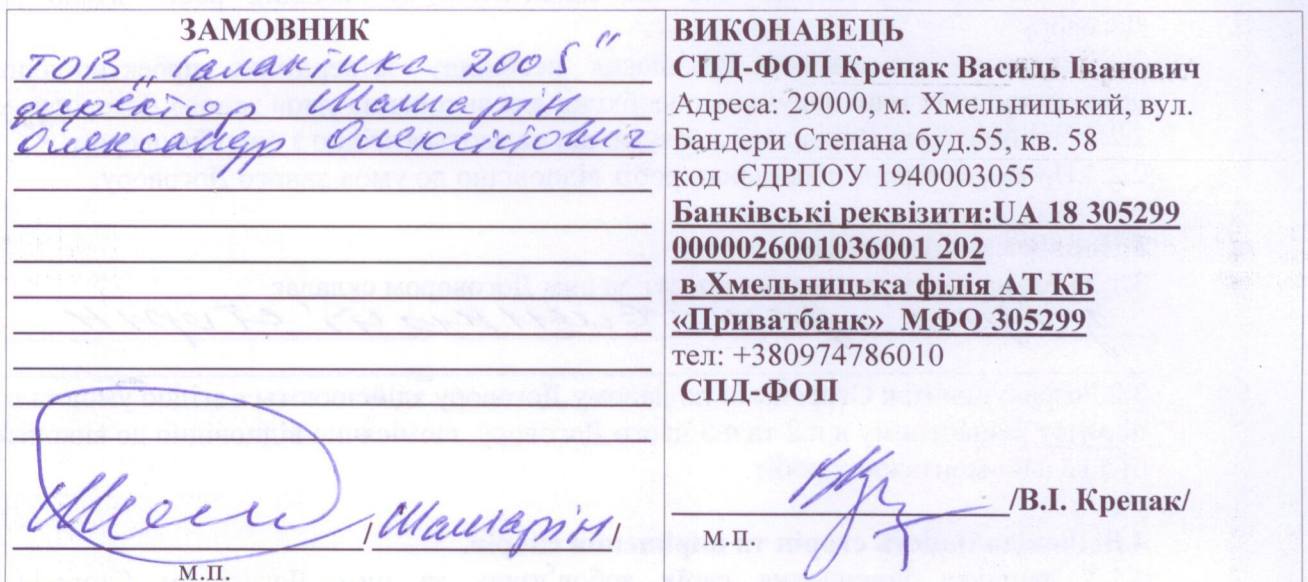 ЗАМОВНИК
ТОВ „Галактика 2005"
директор Машарін
Олександр Олексійович
/ Машарін /
м.п.
ВИКОНАВЕЦЬ
СПД-ФОП Крепак Василь Іванович
Адреса: 29000, м. Хмельницький, вул.
Бандери Степана буд.55, кв. 58
код ЄДРПОУ 1940003055
Банківські реквізити:UA 18 305299
0000026001036001 202
в Хмельницька філія АТ КБ
«Приватбанк» МФО 305299
тел: +380974786010
СПД-ФОП
/В.І. Крепак/
м.п.